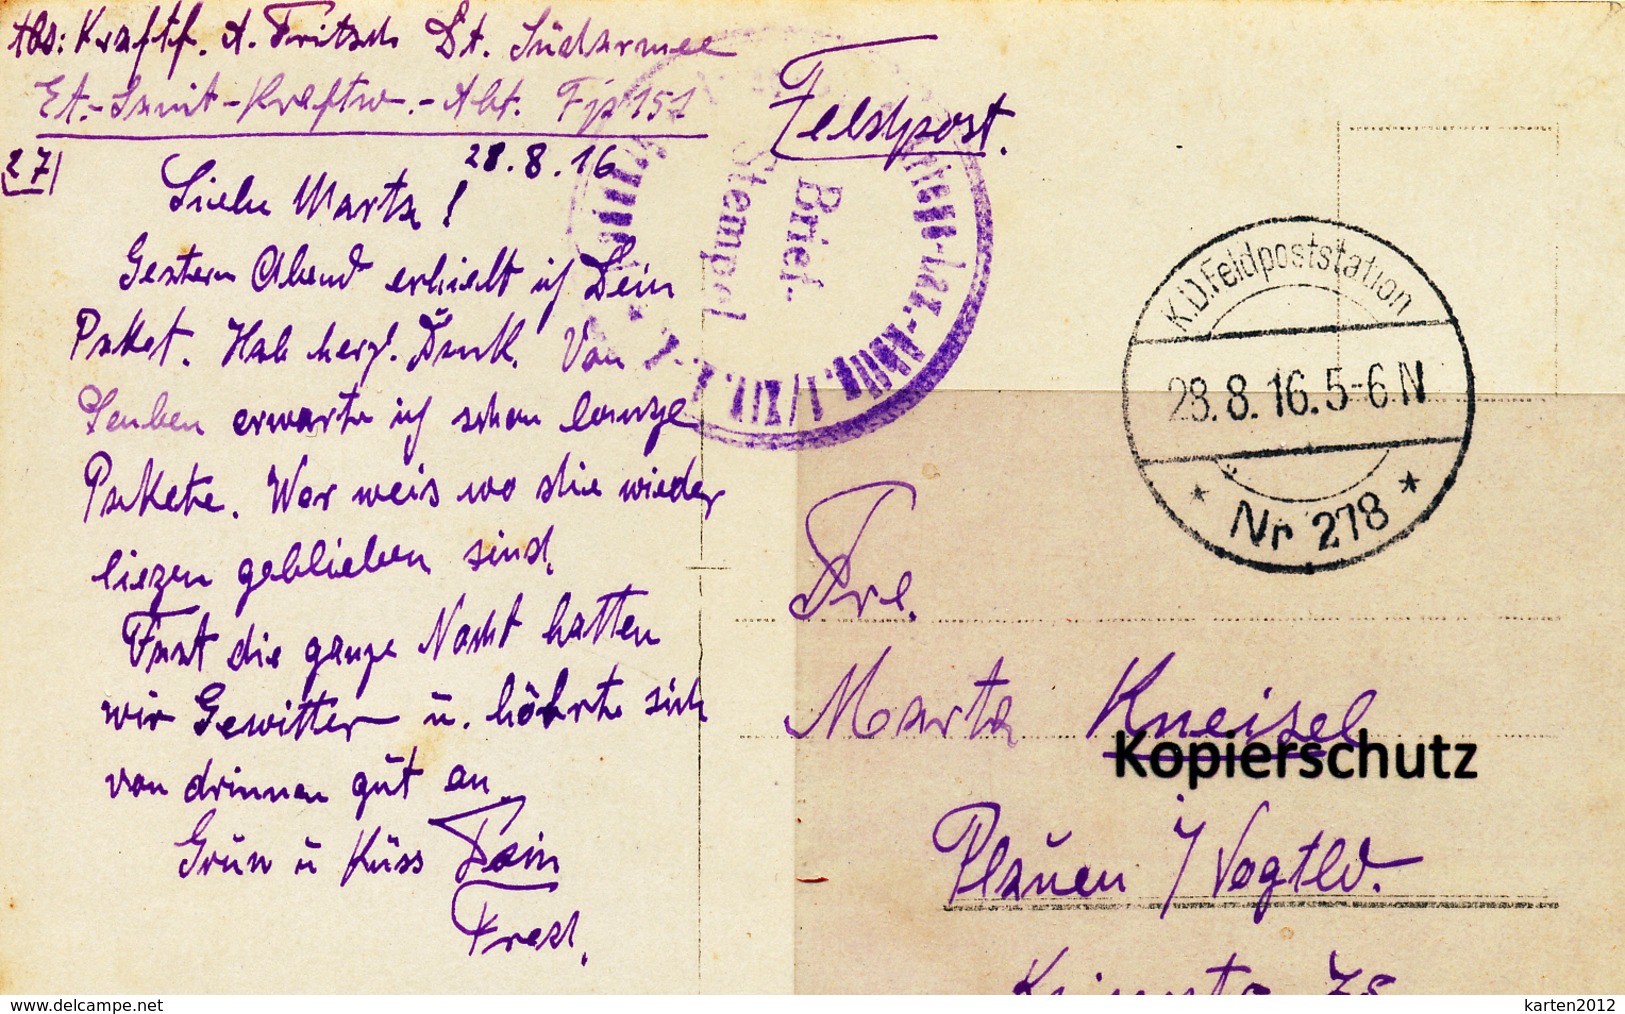 Abs: Kraftf. A. Fritsch Dt. Südarmee
Et.-Sanit-Kraftw.-Abt. Fp 151
Feldpost.
27)
28.8.16
Liebe Marta!
Gestern Abend erhielt ich Dein
Paket. Hab herzl. Dank. Von
erwarte ich schon lange
Pakete. Wer weis wo die wieder
liegen geblieben sind.
Fast die ganze Nacht hatten
wir Gewitter u. höhrte sich
von drinnen gut an.
Grüss u Küss Dein
Fred.
Brief-
Stempel
K.D.Feldpoststation
28.8.16.5-6N
* Nr 278 *
Fre.
Marta Kneisel
Kopierschutz
Plauen i/Vogtld.
75
delcampe.net
karten2012